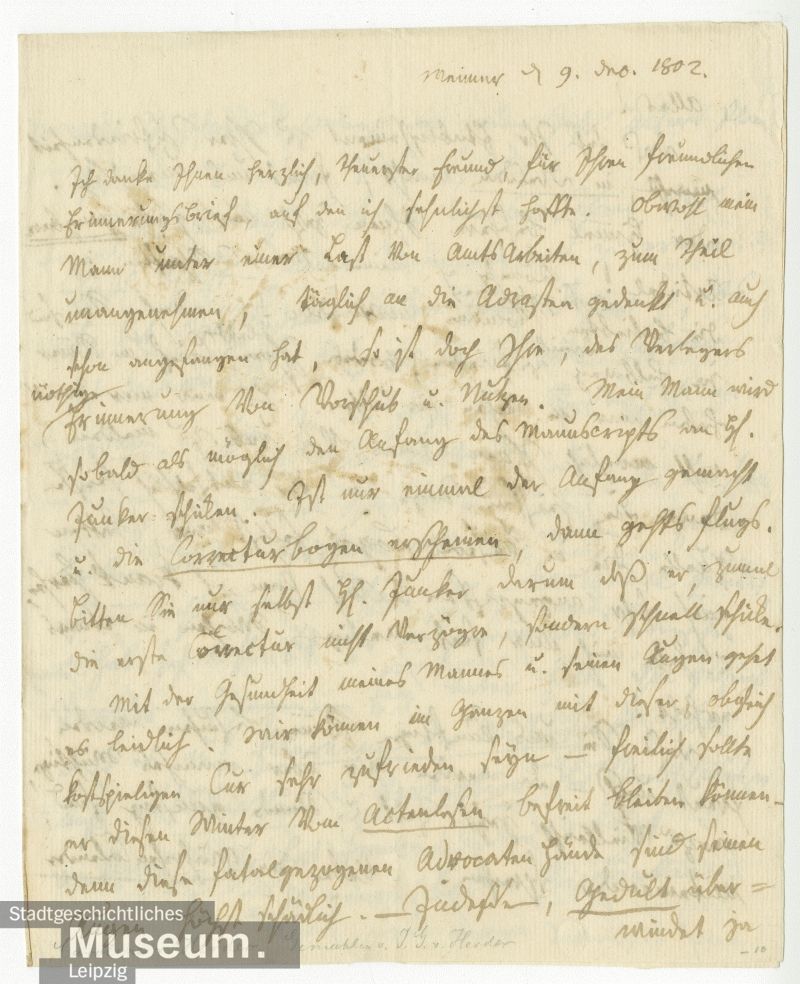 Weimar d 9. Dec. 1802.
Ich danke Ihnen herzlich, theuerster Freund, für Ihren freundlichen
Erinnerungsbrief, auf den ich sehnlichst hoffte. Obwohl mein
Mann unter einer Last von AmtsArbeiten, zum Theil
unangenehmen, täglich an die Adrastea gedenkt u. auch
schon angefangen hat, so ist doch Ihre, des Verlegers
nöthige
Erinnerung von Vorschub u. Nutzen. Mein Mann wird
sobald als möglich den Anfang des Manuscripts an H.
Junker schiken. Ist nur einmal der Anfang gemacht
u. die Correcturbogen erscheinen, dann gehts flugs.
Bitten Sie nur selbst H. Junker darum daß er, zumal
die erste Correctur nicht verzögre, sondern schnell schike.
Mit der Gesundheit meines Mannes u. seinen Augen gehet
es leidlich. Wir können im Ganzen mit dieser, obgleich
kostspieligen Cur sehr zufrieden seyn — freilich sollte
er diesen Winter vom Actenlesen befreit bleiben können —
denn diese fatalgezogenen Advocaten Hände sind seinen
Augen höchst schädlich. — Indeßen, Gedult über=
windet ja
v. J. G. v. Herder
Stadtgeschichtliches
Museum.
Leipzig